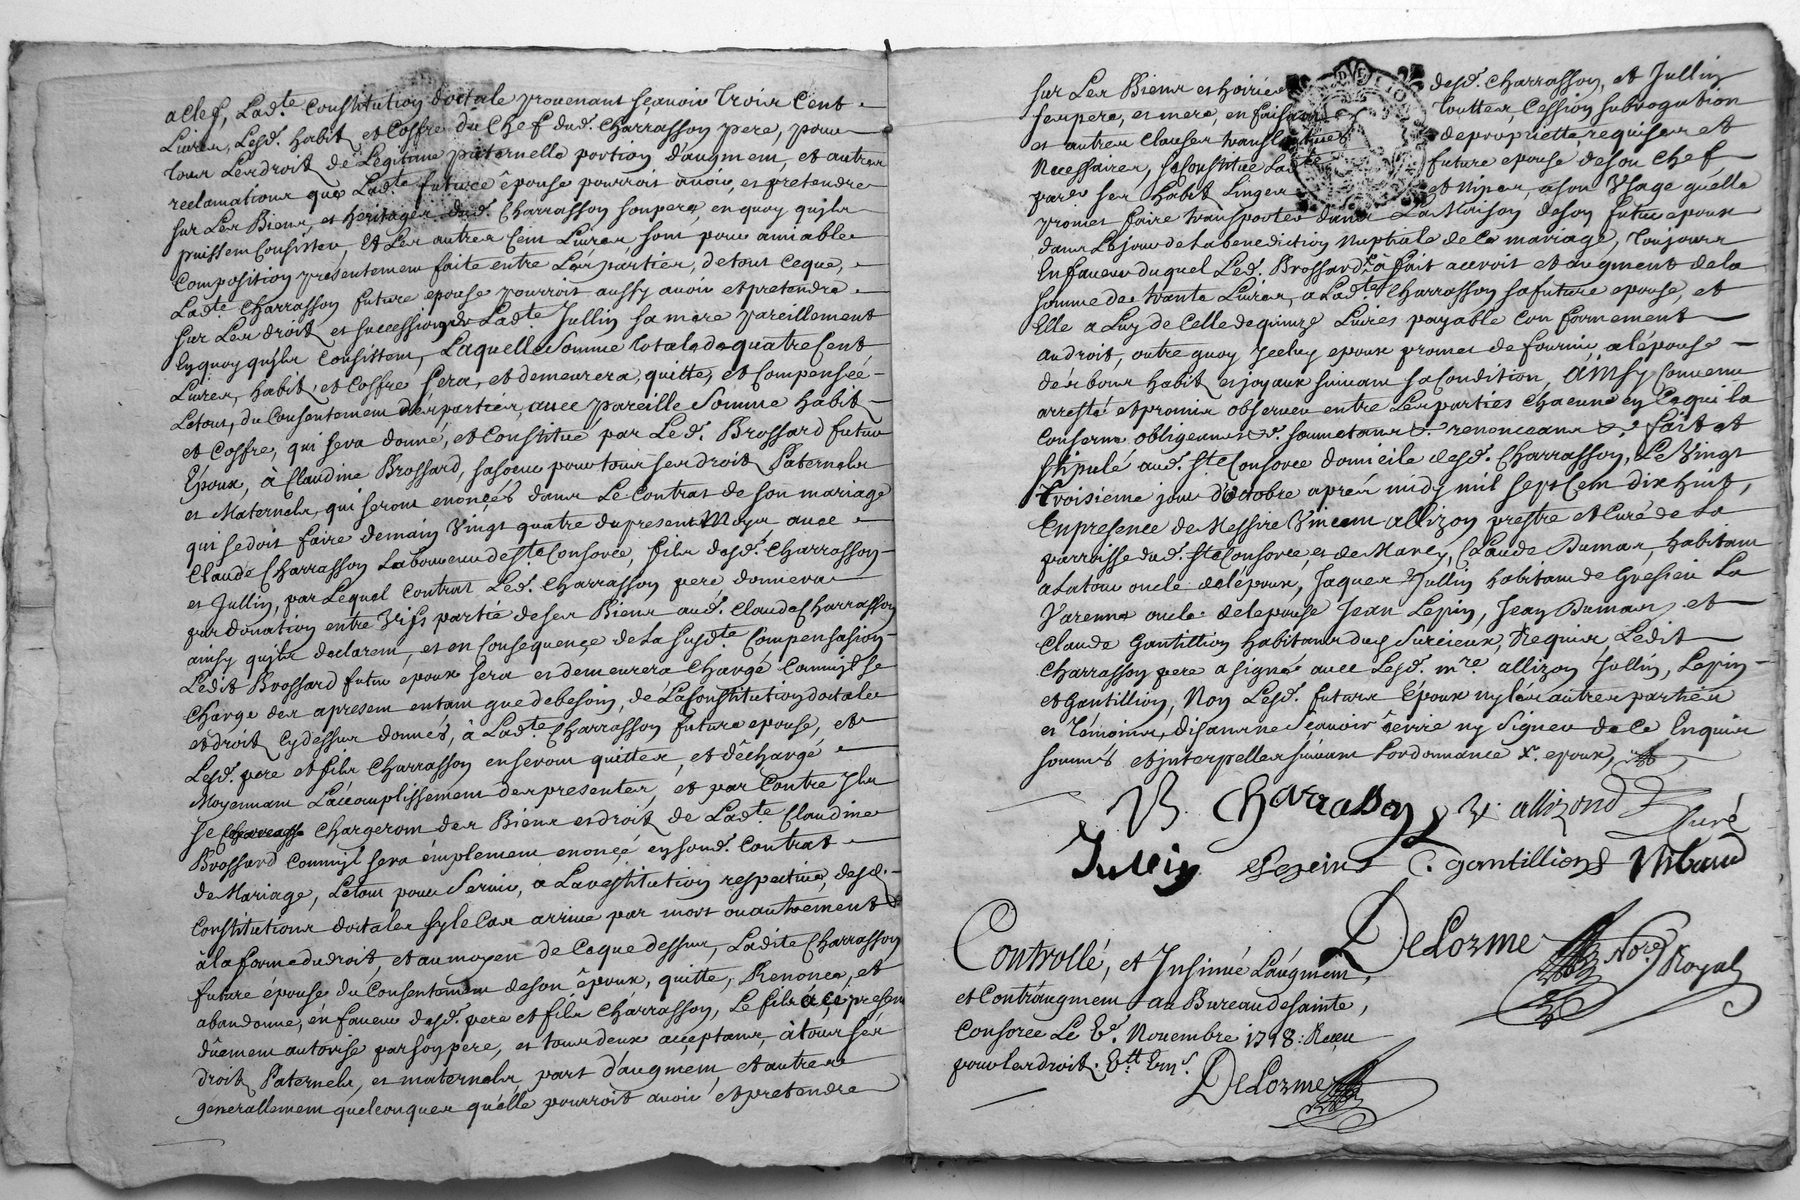 a Clef, Lad.te Constitution doctale provenant sçavoir trois Cent
Livres, Lesd. habit et Coffre du Chef dud. Charrasson pere, pour
tous Les droit de Legitime paternelle portion d'augment, et autres
reclamations que Lad.te future êpouse pourroit avoir, et pretendre
sur Les Biens, et heritages dud. Charrasson son pere, en quoy qu'ils
puissent Consister, Et Les autres Cent Livres sont pour amiable
Composition presentement faite entre Les parties, de tout Ceque,
Lad.te Charrasson future epouse pourroit aussy avoir et pretendre
sur Les droit, et succession de Lad.te Jullin sa mere pareillement
En quoy qu'ils Consistent, Laquelle Somme totale de quatre Cent
Livres, habit, et Coffre sera, et demeurera, quitte, et Compensée
Letout, du Consentement des parties, avec pareille Somme habit
et Coffre, qui sera donné, et Constitué par Led. Brossard futur
Epoux, à Claudine Brossard, sa soeur pour tous ses droit Paternels
et Maternels, qui seront enonçés dans Le Contrat de son mariage
qui se doit faire demain Vingt quatre du present Moys avec
Claude Charrasson Laboureur de S.te Consorce, fils desd. Charrasson
et Jullin, par Lequel Contrat Led. Charrasson pere donnera
par donation entre Vifs partie de ses Biens aud. Claude Charrasson
ainsy qu'ils declarent, et en Consequençe de La susd.te Compensasion
Ledit Brossard futur epoux sera et demeurera Chargé Comm'il se
Charge des apresent en tant que de besoin, de La Constitution doctale
et droit Cy dessus donnés, à Lad.te Charrasson future epouse, et
Lesd. pere et fils Charrasson en seront quittes, et dêchargé
Moyennant L'accomplissement des presentes, et par Contre Ils
se Chargeront des Biens et droit de Lad.te Claudine
Brossard Comm'il sera êmplement enonçé en sond. Contrat
de Mariage, Letout pour Servir, a La restitution respective, desd.
Constitutions doctales sy le Cas arrive par mort ou autrement
à la forme du droit, et au moyen de Ceque dessus, Ladite Charrasson
future épouse du Consentement de son êpoux, quitte, Renonce, et
abandonne, en faveur desd. pere et fils Charrasson, Le fils ici present
dûement autorisé par son pere, et tous deux açeptant, à tous ses
droit Paternels, et maternels, part d'augment, et autres
generallement quelconques qu'elle pourroit avoir et pretendre
sur Les Biens et hoiries desd. Charrasson, et Jullin
ses pere, et mere, en faisant toutes, Cession subrogation
et autres Clauses translatives de proprietté requises et
Necessaires, se Constitue Lad.te future epouse de son Chef
pareil ses habit Linges et Nipes, a son Usage qu'elle
promet faire transporter dans La Maison de son futur epoux
dans Le jour de La benediction Nuptiale de Ce mariage, toujours
En faveur duquel Led. Brossard a fait accroit et augment de la
somme de trente Livres, a Lad.te Charrasson sa future epouse, et
Elle a Luy de Celle de quinze Livres payable Conformement
au droit, outre quoy Jceluy epoux promet de fournir, a l'épouse
des bons habit et joyaux suivant sa Condition, Ainsy Convenu
arresté et promis observer entre Les parties Chacune en Ce qui La
Conserne obligeant &.ª soumetant &.ª renonceant &.ª fait et
stipulé aud. S.te Consorce domicile desd. Charrasson, Le Vingt
troisieme jour d'octobre aprés midy mil sept Cent dix huit,
En presence de Messire Vincent allizon prestre et Curé de La
parroisse dud. S.te Consorce, et de Marcy, Claude Dumas, habitant
a La tour oncle de l'époux, Jaques Jullin habitant de Gresieu La
Varenne oncle de l'epouse Jean Lepin, Jean Dumas, et
Claude Gantillion habitants du Surcieux, Requis, Ledit
Charrasson pere a signé avec Lesd. m.re allizon Jullin, Lepin
et Gantillion, Non Lesd. futurs Epoux ny les autres parties
et témoins, disant ne sçavoir êcrire ny signer de Ce Enquis
sommés et interpelles suivant L'ordonnance &. epoux,
B. Charrasson V. allizond Curé
Jullin Lepin C. gantillion Nibaud
DeLorme No.re Royal
Controllé, et Insinué L'augment,
et Contr'augment au Bureau de Sainte,
Consorce Le 6.e Novembre 1718: Reçu
pour les droit. 6.tt
DeLorme